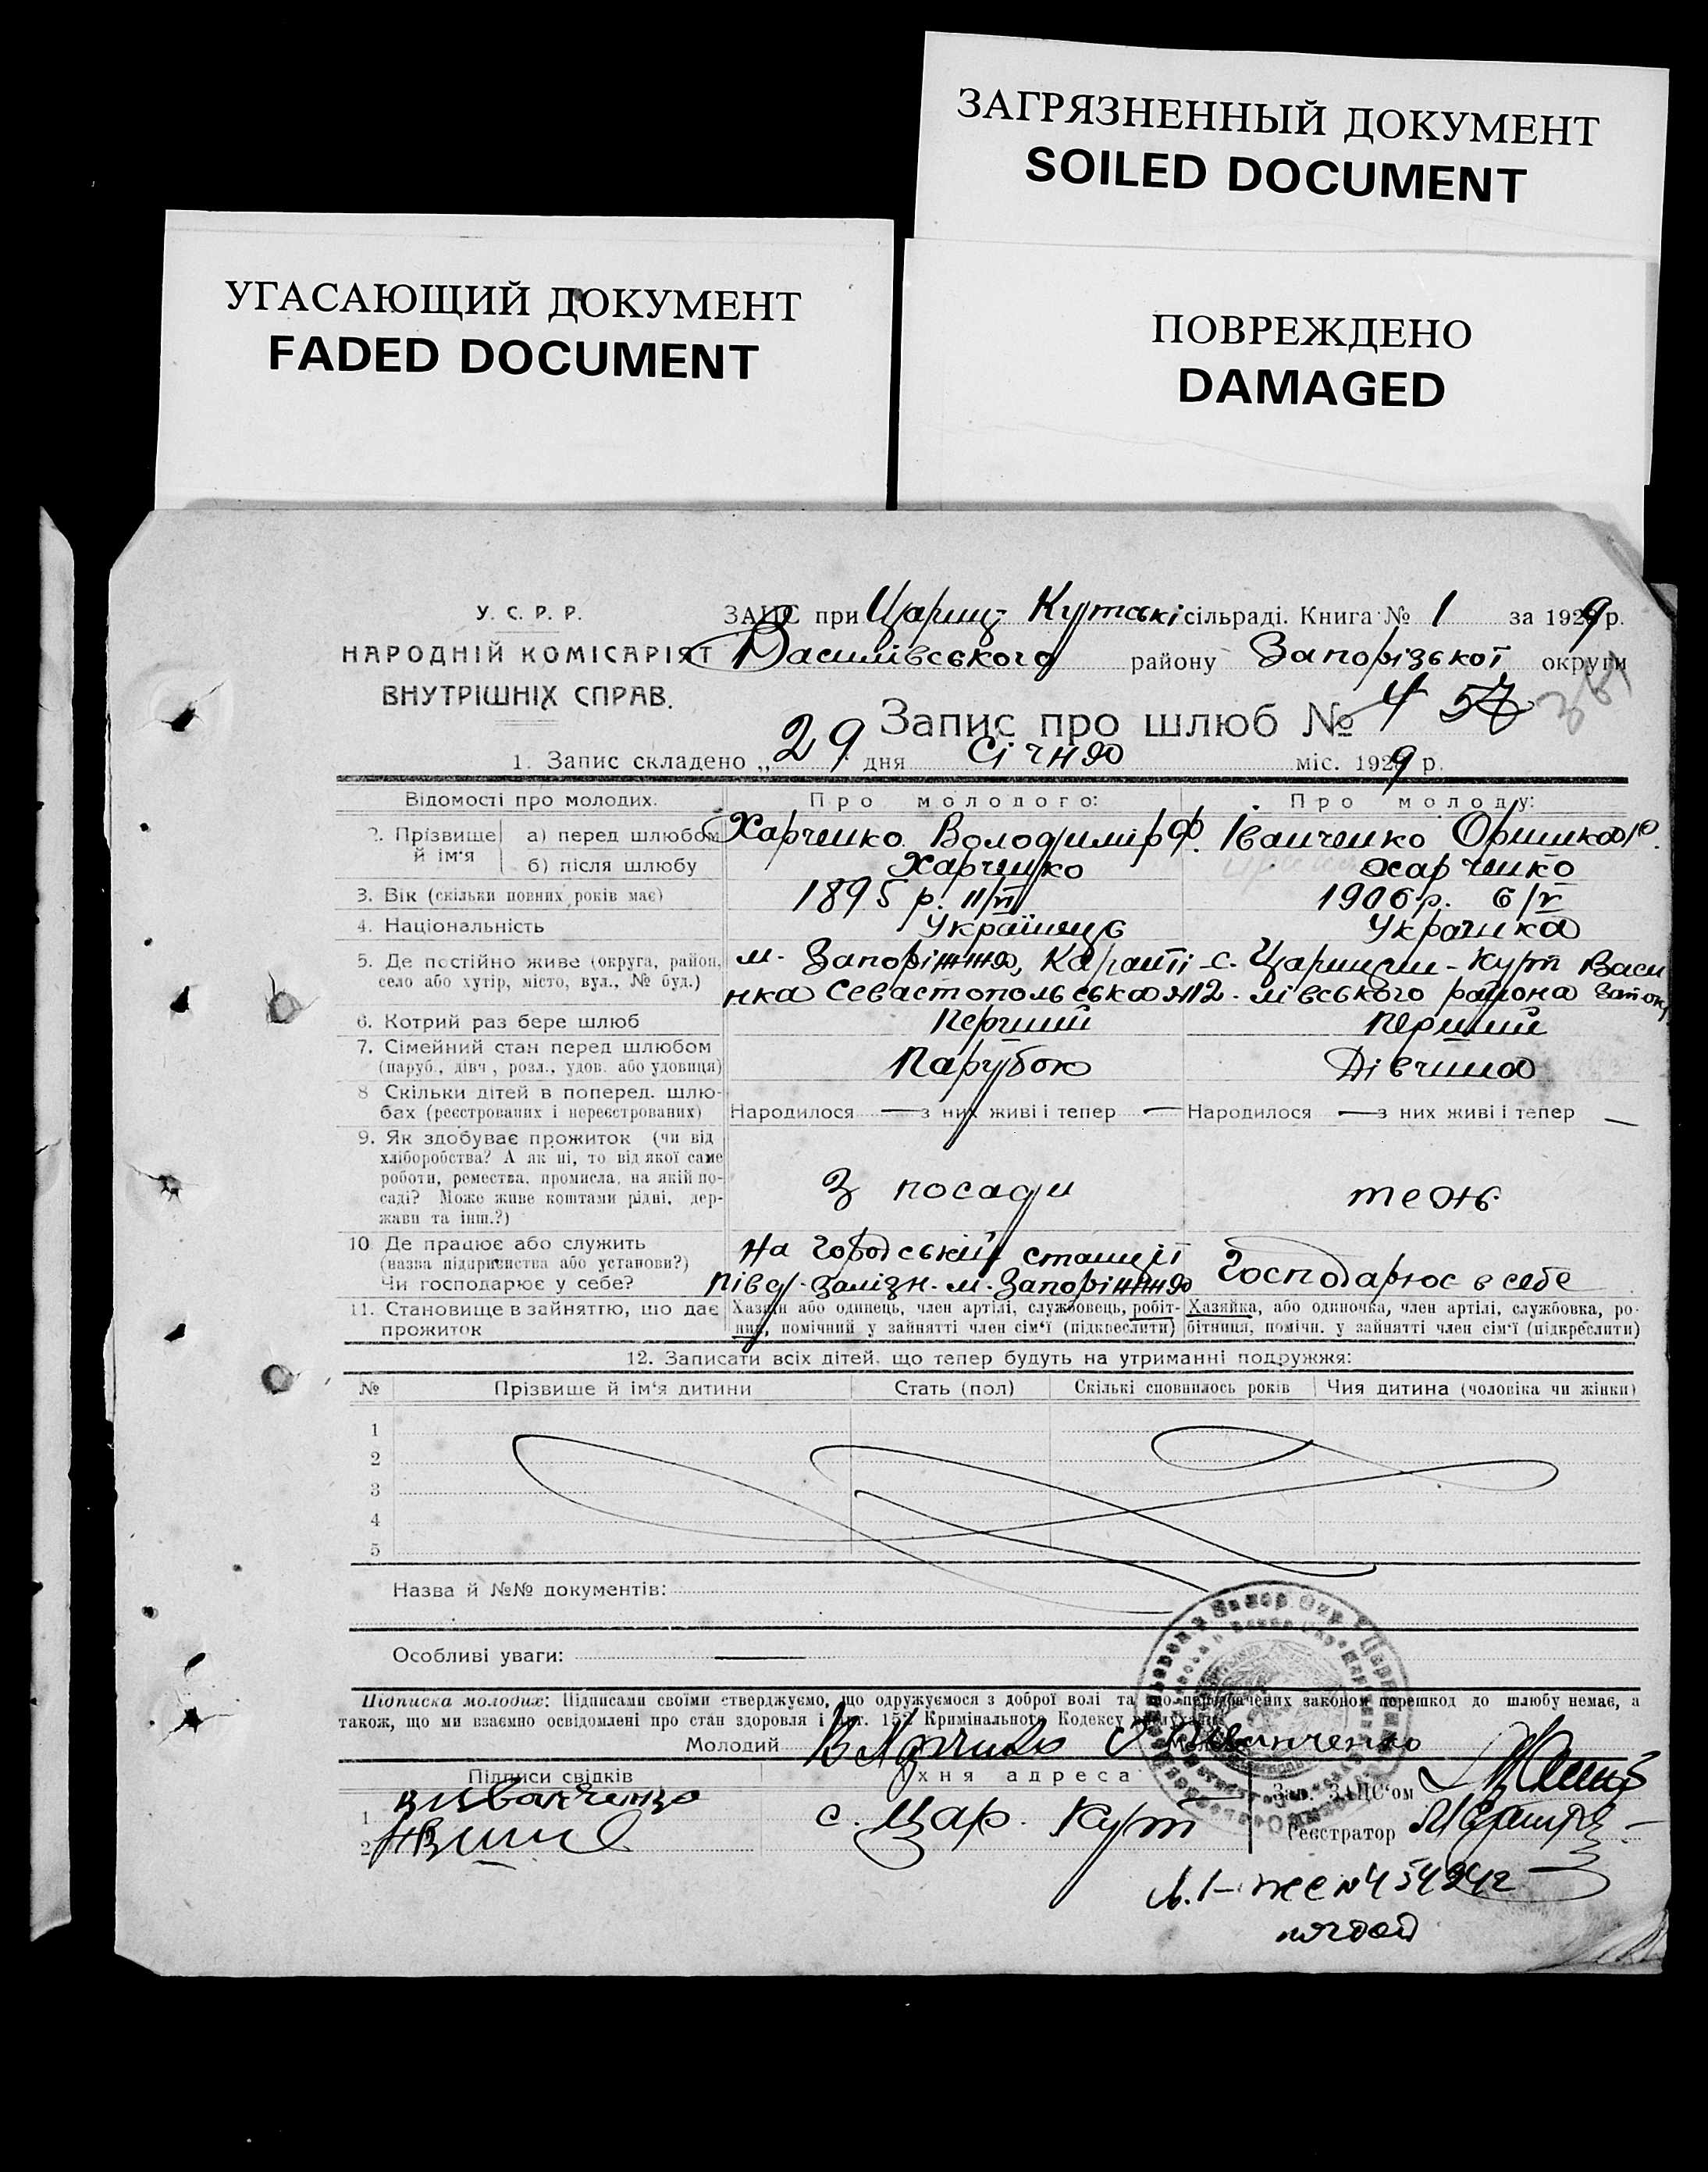 ЗАГРЯЗНЕННЫЙ ДОКУМЕНТ
SOILED DOCUMENT
УГАСАЮЩИЙ ДОКУМЕНТ
FADED DOCUMENT
ПОВРЕЖДЕНО
DAMAGED
У. С. Р. Р.
НАРОДНІЙ КОМІСАРІЯТ
ВНУТРІШНІХ СПРАВ.
ЗАПС при Цариц-Кутські сільраді. Книга № 1 за 1929 р.
Василівського району Запорізької округи
Запис про шлюб № 4 57 361
1. Запис складено „ 29 дня січня міс. 1929 р.
Відомості про молодих. Про молодого: Про молоду:
2. Прізвище й ім'я а) перед шлюбом Харченко Володимір Ф. Іванченко Оришка Ю.
б) після шлюбу Харченко Харченко
3. Вік (скільки повних років має) 1895 р. 11/VI 1906 р. 6/V
4. Національність Українець Українка
5. Де постійно живе (округа, район, м. Запоріжжя, Каранті- с. Царицин-Кут Васи
село або хутір, місто, вул., № буд.) нка Севастопольська №12. лівського района Зап ок,
6. Котрий раз бере шлюб Перший Перший
7. Сімейний стан перед шлюбом Парубок Дівчина
(паруб., дівч, розл., удов. або удовиця)
8 Скільки дітей в поперед. шлю-
бах (реєстрованих і нереєстрованих) Народилося — з них живі і тепер — Народилося — з них живі і тепер —
9. Як здобуває прожиток (чи від
хліборобства? А як ні, то від якої саме
роботи, ремества, промисла, на якій по- з посади теж
саді? Може живе коштами рідні, дер-
жави та інш.?)
10 Де працює або служить На городській станції
(назва підприємства або установи?) Господарює в себе
Чи господарює у себе? півд. залізн. м. Запоріжжя
11. Становище в зайняттю, що дає Хазяїн або одинець, член артілі, службовець, робіт- Хазяйка, або одиночка, член артілі, службовка, ро-
прожиток ник, помічний у зайнятті член сім'ї (підкреслити) бітниця, помічн. у зайнятті член сім'ї (підкреслити)
12. Записати всіх дітей, що тепер будуть на утриманні подружжя:
№ Прізвище й ім'я дитини Стать (пол) Скількі сповнилось років Чия дитина (чоловіка чи жінки)
1
2
3
4
5
Назва й №№ документів:
Особливі уваги:
Підписка молодих: Підписами своїми стверджуємо, що одружуємося з доброї волі та що передбачених законом перешкод до шлюбу немає, а
також, що ми взаємно освідомлені про стан здоровля і арт. 152 Кримінального Кодексу
Молодий В Харченко О Іванченко
Підписи свідків Їхня адреса Зав. ЗАПС'ом
1 Іванченко
с. Цар. Кут Реєстратор
2